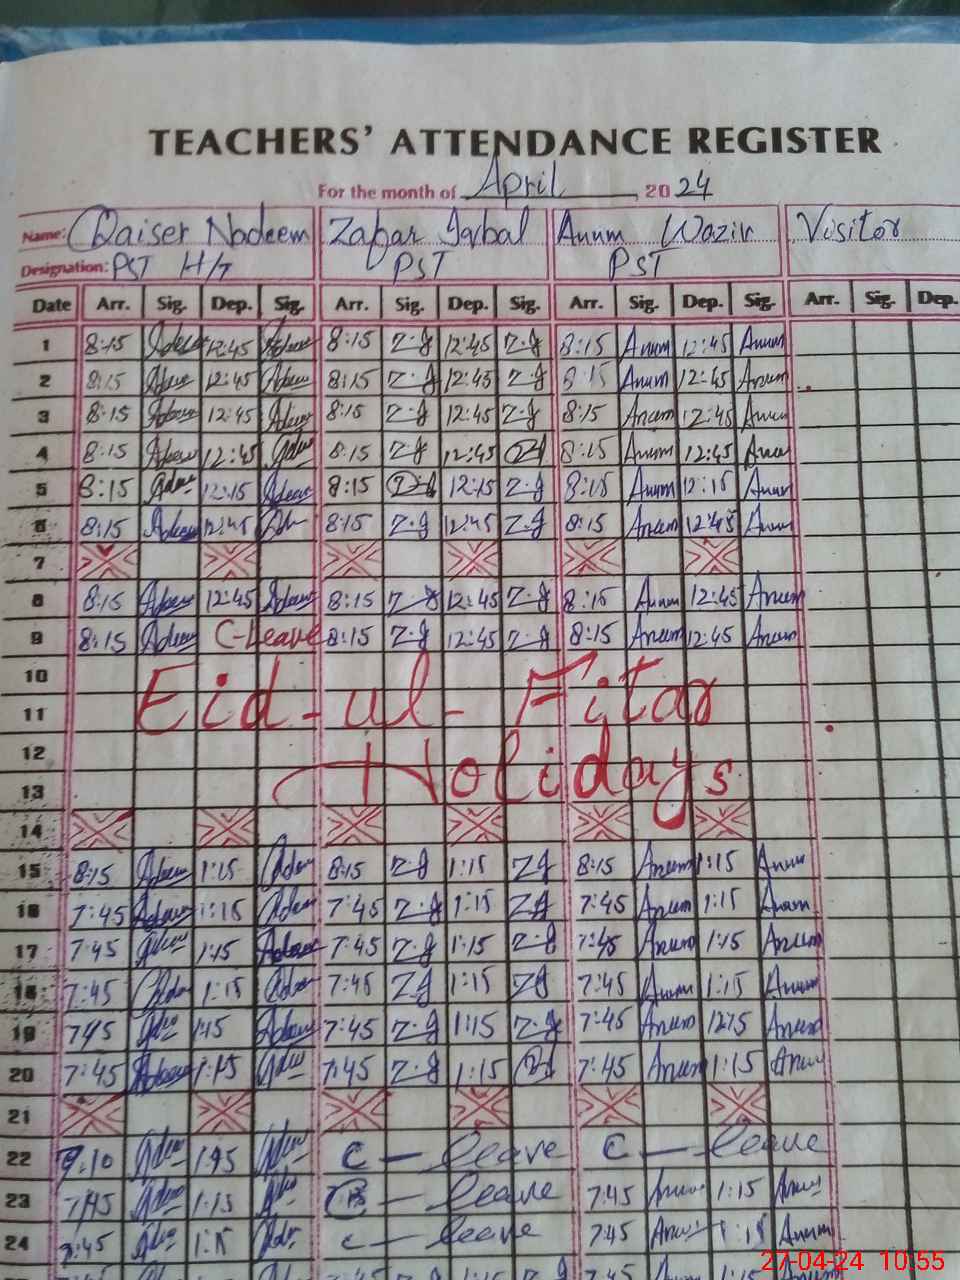 TEACHERS' ATTENDANCE REGISTER
For the month of April 2024
Name: Qaiser Nadeem Zafar Iqbal Anum Wazir Visitor
Designation: PST H/T PST PST
Date Arr. Sig. Dep. Sig. Arr. Sig. Dep. Sig. Arr. Sig. Dep. Sig. Arr. Sig. Dep.
1 8:15 12:45 8:15 Z.J 12:45 Z.J 8:15 Anum 12:45 Anum
2 8:15 12:45 8:15 Z.J 12:45 Z.J 8:15 Anum 12:45 Anum
3 8:15 12:45 8:15 Z.J 12:45 Z.J 8:15 Anum 12:45 Anum
4 8:15 12:45 8:15 Z.J 12:45 8:15 Anum 12:45 Anum
5 8:15 12:15 8:15 12:15 Z.J 8:15 Anum 12:15 Anum
6 8:15 12:45 8:15 Z.J 12:45 Z.J 8:15 Anum 12:45 Anum
7
8 8:15 12:45 8:15 Z.J 12:45 Z.J 8:15 Anum 12:45 Anum
9 8:15 C-Leave 8:15 Z.J 12:45 Z.J 8:15 Anum 12:45 Anum
10
Eid-ul-Fitar
11
12
Holidays
13
14
15 8:15 1:15 8:15 Z.J 1:15 ZJ 8:15 Anum 1:15 Anum
16 7:45 1:15 7:45 Z.J 1:15 ZJ 7:45 Anum 1:15 Anum
17 7:45 1:15 7:45 Z.J 1:15 Z.J 7:45 Anum 1:15 Anum
18 7:45 1:15 7:45 ZJ 1:15 ZJ 7:45 Anum 1:15 Anum
19 7:45 1:15 7:45 Z.J 1:15 Z.J 7:45 Anum Anum
20 7:45 1:15 7:45 Z.J 1:15 7:45 Anum 1:15 Anum
21
22 C - leave C - leave
23 7:45 1:15 C - leave 7:45 Anum 1:15 Anum
24 1:15 C - leave 7:45 Anum 1:15 Anum
27-04-24 10:55